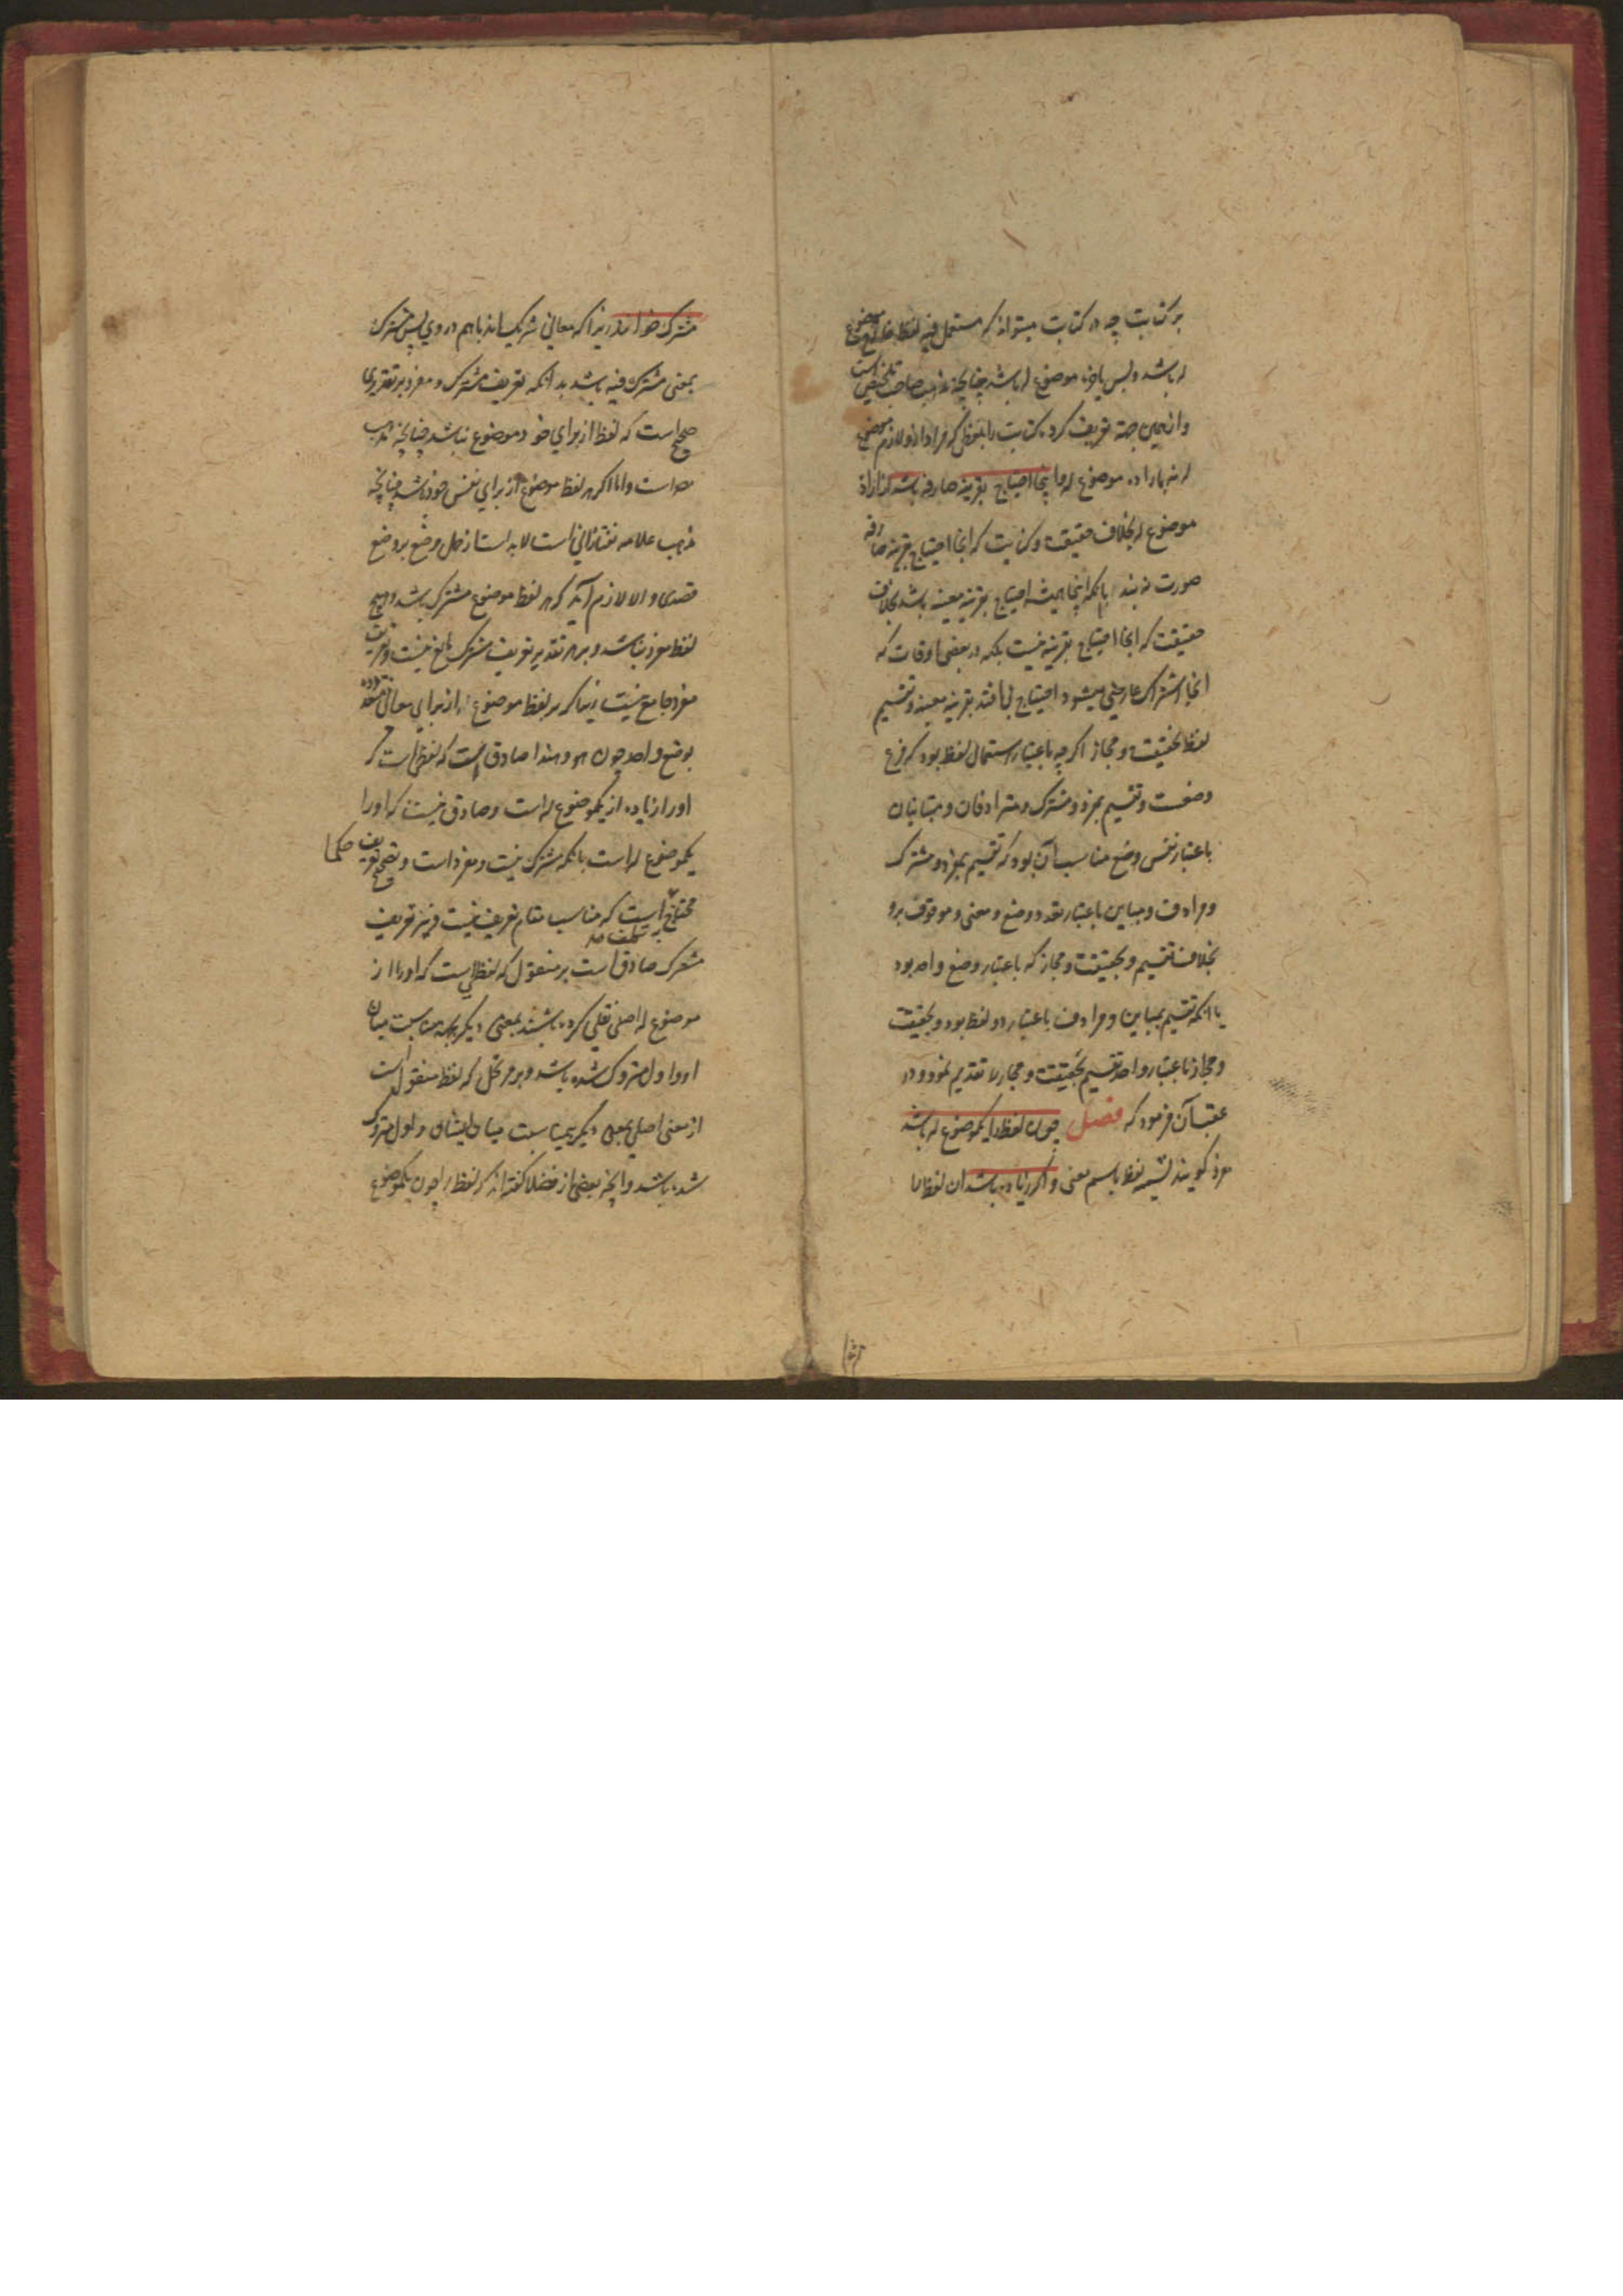 بر کنایت چه در کنایت میتواند که مستعمل فیه لفظ خارج موضوع
له باشد و بس یا خود موضوع له باشد چنانچه مذهب صاحب تلخیص است
و از همین جهة تعریف کرده کنایت را بلفظی که مراد ازو لازم موضوع
له نه باراده موضوع له و اینجا احتیاج بقرینه صارفه باشد از اراده
موضوع له بخلاف حقیقت و کنایت که انجا احتیاج بقرینه صارفه
صورت نه بندد بانکه اینجا همیشه احتیاج بقرینه معینه باشد بخلاف
حقیقت که انجا احتیاج بقرینه نیست بلکه در بعضی اوقات که
انجا اشتراک عارضی میشود احتیاج می افتد بقرینه معینه و تقسیم
لفظ بحقیقت و مجاز اگرچه باعتبار استعمال لفظ بود که فرع
وضعست و تقسیم بمفرد و مشترک و مترادفان و متباینان
باعتبار نفس وضع مناسب آن بود که تقسیم بمفرد و مشترک
و مرادف و مباین باعتبار تعدد وضع و معنی و موقوف برو
بخلاف تقسیم و بحقیقت و مجاز که باعتبار وضع واحد بود
با انکه تقسیم بمباین و مرادف باعتبار دو لفظ بود و بحقیقت
و مجاز باعتبار واحد تقسیم بحقیقت و مجاز را تقدیم نمود و در
عقب آن فرمود که فصل چون لفظ را یکموضوع له باشد
مفرد گویند تسمیه لفظ باسم معنی و اگر زیاده باشد ان لفظ را
مشترک خوانند زیرا که معانی شریک اند باهم در وی پس مشترک
بمعنی مشترک فیه باشد بدانکه تعریف مشترک و مفرد بر تقدیری
صحیح است که لفظ از برای خود موضوع نباشد چنانچه مذهب
است و اما اگر هر لفظ موضوع از برای نفس خود باشد چنانچه
مذهب علامه تفتازانی است لابد است از حمل وضع بر وضع
قصدی و الا لازم آید که هر لفظ موضوع مشترک باشد و هیچ
لفظ مفرد نباشد و بر هر تقدیر تعریف مشترک مانع نیست و تعریف
مفرد جامع نیست زیرا که بر لفظ موضوع از برای معانی متعدده
بوضع واحد چون هو و هذا صادق است که لفظی است که
او را زیاده از یکموضوع له است و صادق نیست که او را
یکموضوع له است بانکه مشترک نیست و مفرد است و تصحیح تعریف حکما
محتاج است که مناسب مقام تعریف نیست و نیز تعریف
مشترک صادق است بر منقول که لفظی است که او را از
موضوع له اصلی نقلی کرده باشند بمعنی دیگر بمناسبت میان
او و اول متروک شده باشد و بر مرتجل که لفظ منقول است
از معنی اصلی بمعنی دیگر بی مناسبت میان ایشان و اول متروک
شده باشد و انچه بعضی از فضلا گفته اند که لفظ را چون یکموضوع